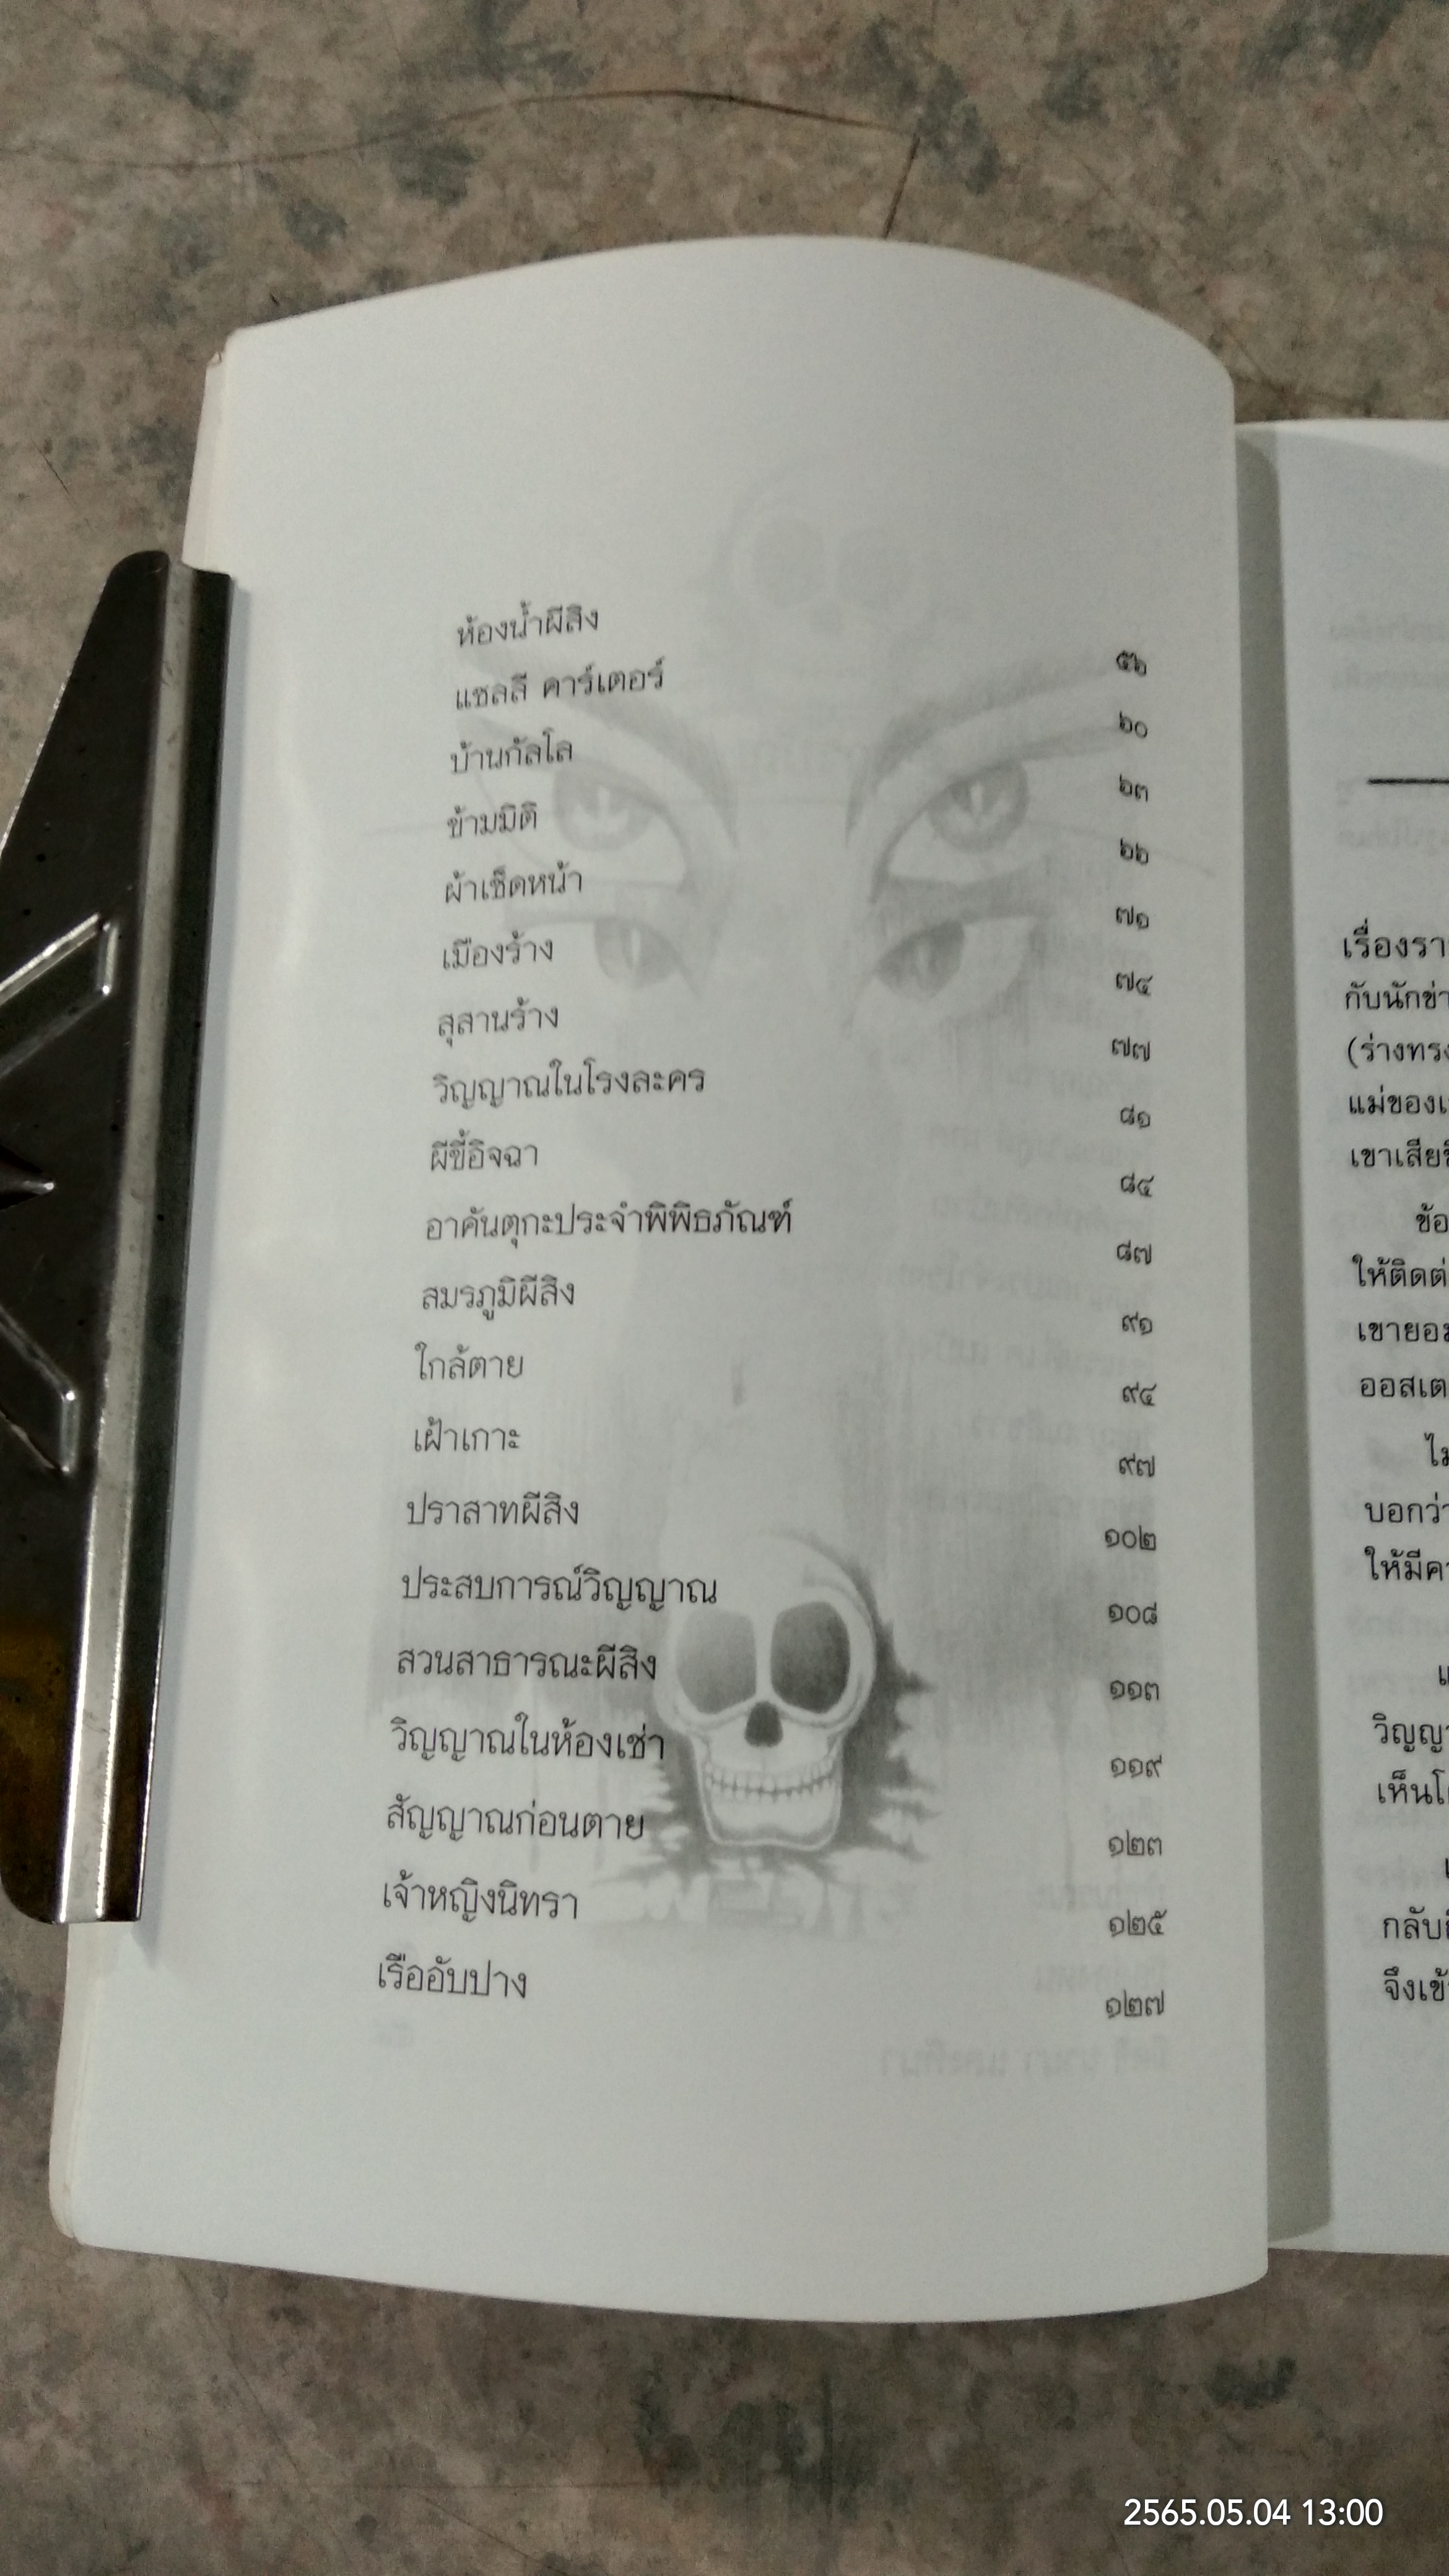 ห้องน้ำผีสิง ๕๖
แซลลี คาร์เตอร์ ๖๐
บ้านกัลโล ๖๓
ข้ามมิติ ๖๖
ผ้าเช็ดหน้า ๗๑
เมืองร้าง ๗๔
สุสานร้าง ๗๗
วิญญาณในโรงละคร ๘๑
ผีขี้อิจฉา ๘๔
อาคันตุกะประจำพิพิธภัณฑ์ ๘๗
สมรภูมิผีสิง ๙๑
ใกล้ตาย ๙๔
เฝ้าเกาะ ๙๗
ปราสาทผีสิง ๑๐๒
ประสบการณ์วิญญาณ ๑๐๘
สวนสาธารณะผีสิง ๑๑๓
วิญญาณในห้องเช่า ๑๑๙
สัญญาณก่อนตาย ๑๒๓
เจ้าหญิงนิทรา ๑๒๕
เรืออับปาง ๑๒๗
เรื่องรา
กับนักข่า
(ร่างทรง
แม่ของเ
เขาเสียชี
ข้อ
ให้ติดต่
เขายอม
ออสเต
ไม
บอกว่า
ให้มีคา
แ
วิญญา
เห็นโ
เ
กลับ
จึงเข้
2565.05.04 13:00